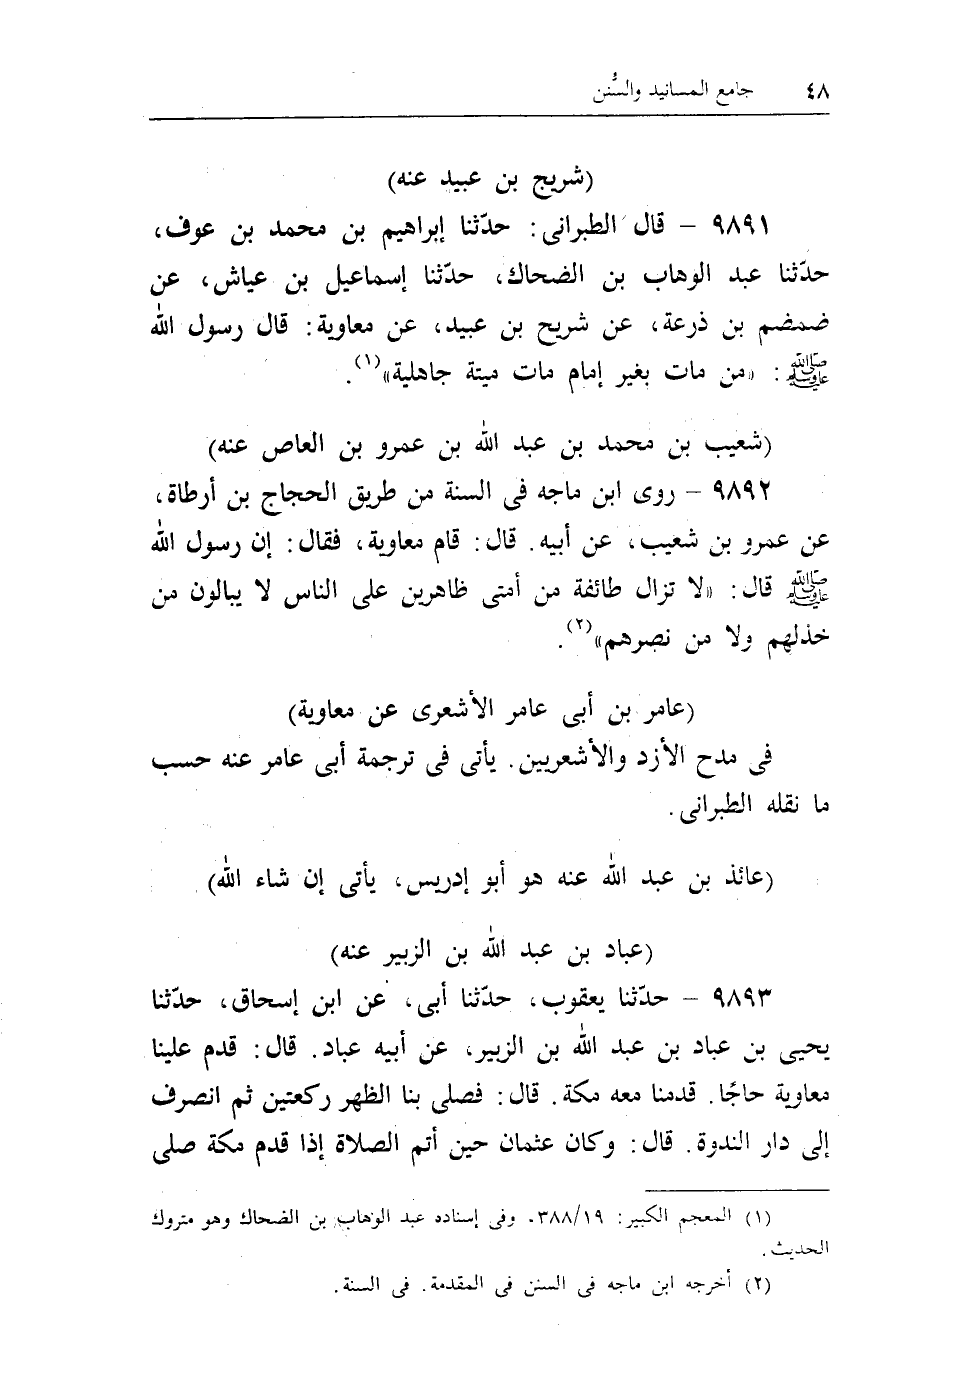 ٤٨ جامع المسانيد والسُّنن
(شريج بن عبيد عنه)
٩٨٩١ – قال الطبرانى: حدّثنا إبراهيم بن محمد بن عوف،
حدّثنا عبد الوهاب بن الضحاك، حدّثنا إسماعيل بن عياش، عن
ضمضم بن ذرعة، عن شريح بن عبيد، عن معاوية: قال رسول الله
ﷺ: «من مات بغير إمام مات ميتة جاهلية»(١).
(شعيب بن محمد بن عبد الله بن عمرو بن العاص عنه)
٩٨٩٢ – روى ابن ماجه فى السنة من طريق الحجاج بن أرطاة،
عن عمرو بن شعيب، عن أبيه. قال: قام معاوية، فقال: إن رسول الله
ﷺ قال: «لا تزال طائفة من أمتى ظاهرين على الناس لا يبالون من
خذلهم ولا من نصرهم»(٢).
(عامر بن أبى عامر الأشعرى عن معاوية)
فى مدح الأزد والأشعريين. يأتى فى ترجمة أبى عامر عنه حسب
ما نقله الطبرانى.
(عائذ بن عبد الله عنه هو أبو إدريس، يأتى إن شاء الله)
(عباد بن عبد الله بن الزبير عنه)
٩٨٩٣ – حدّثنا يعقوب، حدّثنا أبى، عن ابن إسحاق، حدّثنا
يحيى بن عباد بن عبد الله بن الزبير، عن أبيه عباد. قال: قدم علينا
معاوية حاجًا. قدمنا معه مكة. قال: فصلى بنا الظهر ركعتين ثم انصرف
إلى دار الندوة. قال: وكان عثمان حين أتم الصلاة إذا قدم مكة صلى
(١) المعجم الكبير: ٣٨٨/١٩. وفى إسناده عبد الوهاب بن الضحاك وهو متروك
الحديث.
(٢) أخرجه ابن ماجه فى السنن فى المقدمة. فى السنة.